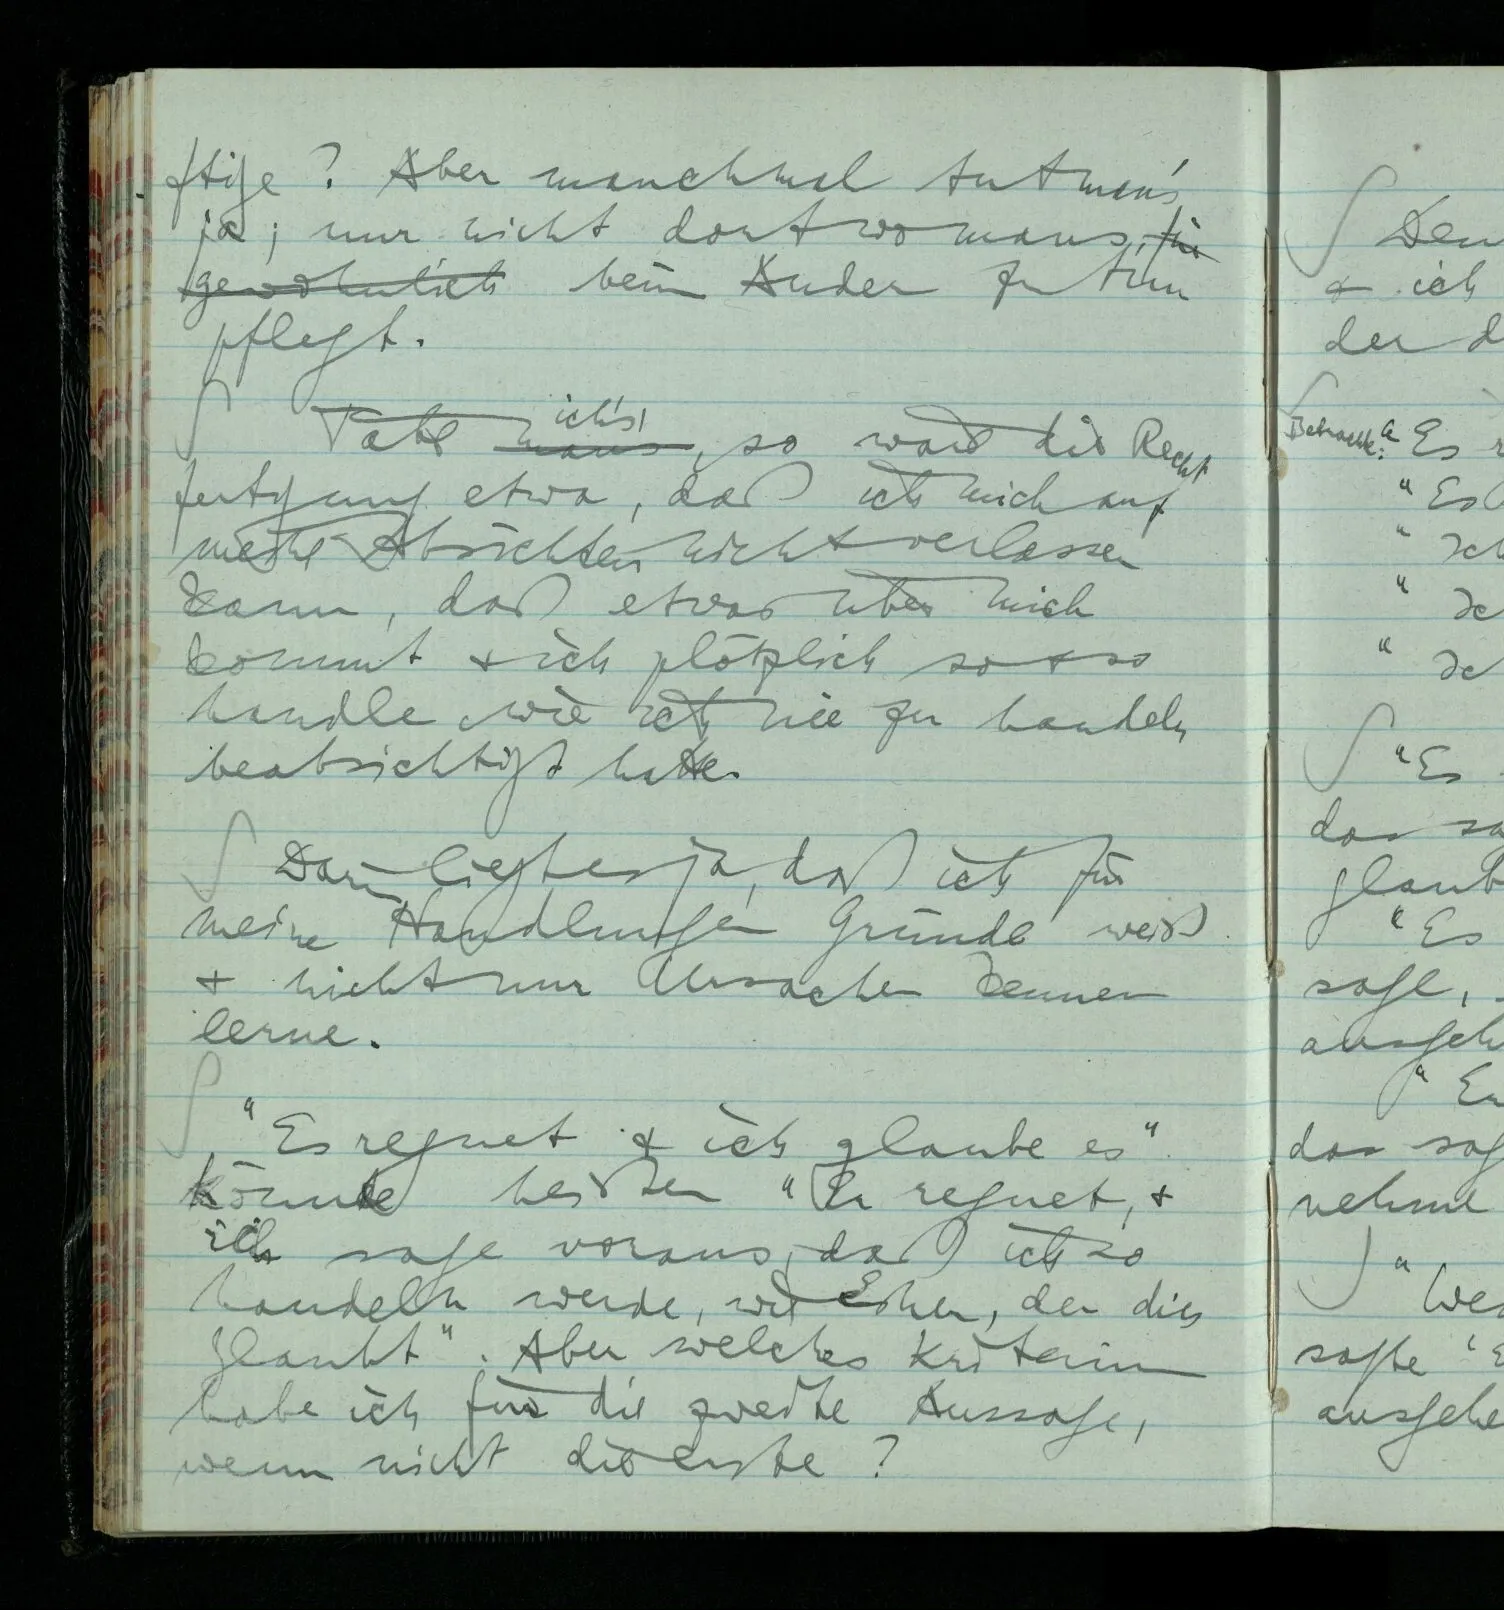 ftige? Aber manchmal tut man's
ja; nur nicht dort wo mans, für
gewöhnlich beim Andern zu tun
pflegt.
Täte mans ich's, so wäre die Recht
fertigung etwa, daß ich mich auf
meine Absichten nicht verlassen
kann, daß etwas über mich
kommt & ich plötzlich so & so
handle wie ich nie zu handeln
beabsichtigt hatte.
Darin liegt es ja, daß ich für
meine Handlungen Gründe weiß
& nicht nur Ursachen kennen
lerne.
"Es regnet & ich glaube es"
könnte heißen "Es regnet, &
ich sage voraus, daß ich so
handeln werde, wie Einer, der dies
glaubt". Aber welches Kriterium
habe ich für die zweite Aussage,
wenn nicht die erste?
Den
& ich
der d
Betrachte: "Es r
"Es
"Ich
"Ic
"Ic
"Es
das sa
glaub
"Es
sage,
ausgeh
das sag
nehme
"We
sagte "E
ausgehe